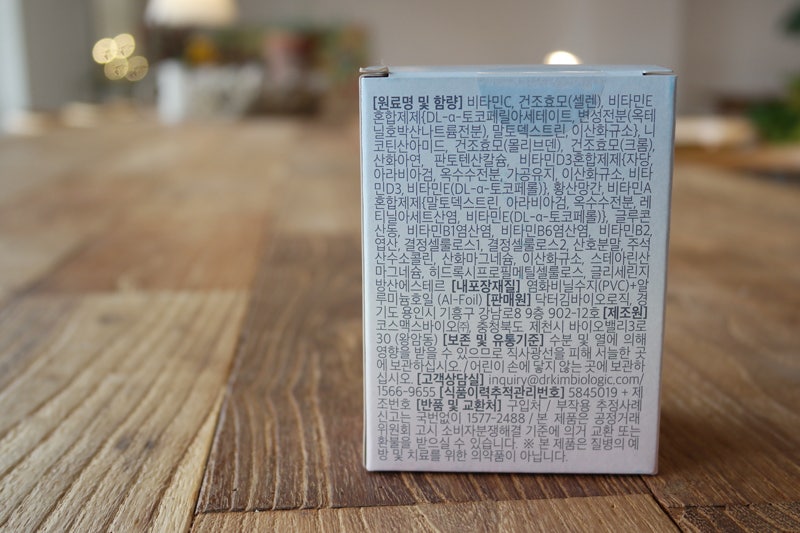 [원료명 및 함량] 비타민C, 건조효모(셀렌), 비타민E
혼합제제{DL-α-토코페릴아세테이트, 변성전분(옥테
닐호박산나트륨전분), 말토덱스트린, 이산화규소}, 니
코틴산아미드, 건조효모(몰리브덴), 건조효모(크롬),
산화아연, 판토텐산칼슘, 비타민D3혼합제제{자당,
아라비아검, 옥수수전분, 가공유지, 이산화규소, 비타
민D3, 비타민E(DL-α-토코페롤)}, 황산망간, 비타민A
혼합제제{말토덱스트린, 아라비아검, 옥수수전분, 레
티닐아세트산염, 비타민E(DL-α-토코페롤)}, 글루콘
산동, 비타민B1염산염, 비타민B6염산염, 비타민B2,
엽산, 결정셀룰로스1, 결정셀룰로스2, 산호분말, 주석
산수소콜린, 산화마그네슘, 이산화규소, 스테아린산
마그네슘, 히드록시프로필메틸셀룰로스, 글리세린지
방산에스테르 [내포장재질] 염화비닐수지(PVC)+알
루미늄호일 (Al-Foil) [판매원] 닥터김바이오로직, 경
기도 용인시 기흥구 강남로8 9층 902-12호 [제조원]
코스맥스바이오㈜, 충청북도 제천시 바이오밸리3로
30 (왕암동) [보존 및 유통기준] 수분 및 열에 의해
영향을 받을 수 있으므로 직사광선을 피해 서늘한 곳
에 보관하십시오. / 어린이 손에 닿지 않는 곳에 보관하
십시오. [고객상담실] inquiry@drkimbiologic.com/
1566-9655 [식품이력추적관리번호] 5845019 + 제
조번호 [반품 및 교환처] 구입처 / 부작용 추정사례
신고는 국번없이 1577-2488 / 본 제품은 공정거래
위원회 고시 소비자분쟁해결 기준에 의거 교환 또는
환불을 받으실 수 있습니다. ※ 본 제품은 질병의 예
방 및 치료를 위한 의약품이 아닙니다.